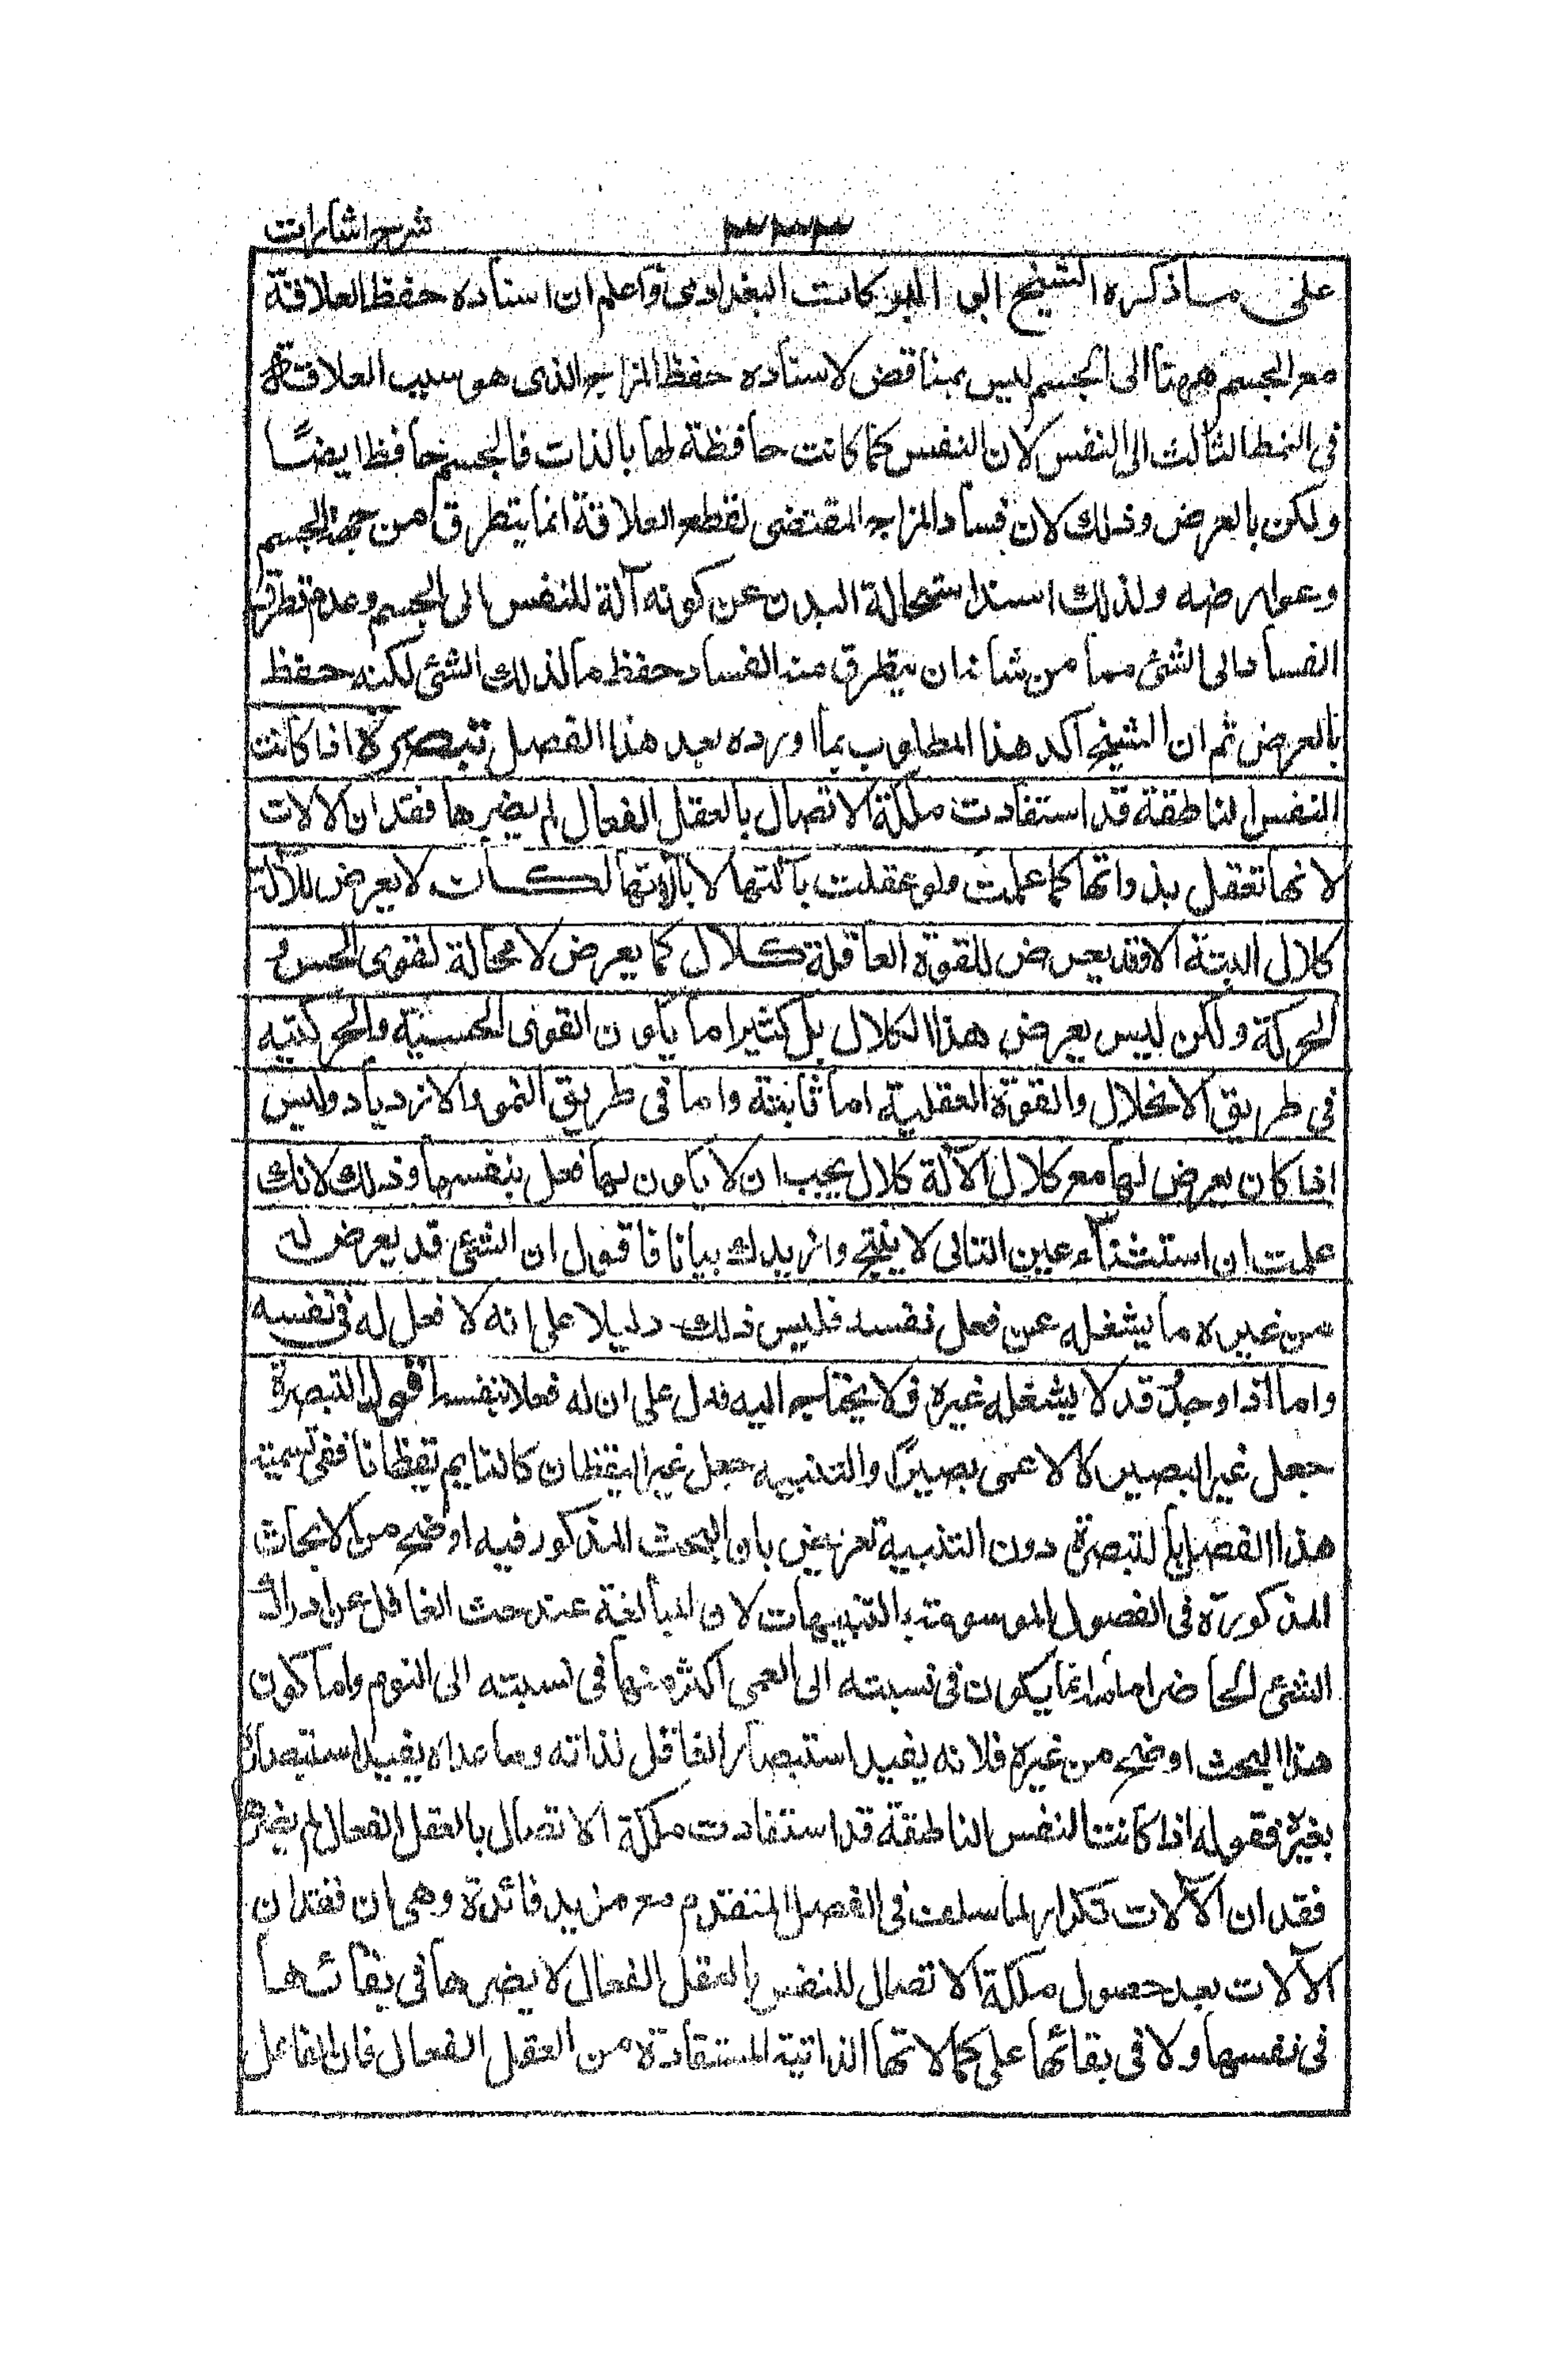 شرح اشارات
٣٣٣
على ما ذكره الشيخ ابى البركات البغدادى واعلم ان اسناده حفظ العلاقة
مع الجسم ههنا الى الجسم ليس بمناقض لاسناده حفظ المزاج الذى هو سبب العلاقة
فى النمط الثالث الى النفس لان النفس كما كانت حافظة لها بالذات فالجسم حافظ ايضًا
ولكن بالعرض وذلك لان فساد المزاج المقتضى لقطع العلاقة انما يتطرق من جهة الجسم
وعوارضه ولذلك اسند استحالة البدن عن كونه آلة للنفس الى الجسم وعدم تطرق
الفساد الى الشئ مما من شانه ان يتطرق منه الفساد حفظ ما لذلك الشئ لكنه حفظ
بالعرض ثم ان الشيخ اكد هذا المطلوب بما اورده بعد هذا الفصل تبصرة اذا كانت
النفس الناطقة قد استفادت ملكة الاتصال بالعقل الفعال لم يضرها فقدان الالات
لانها تعقل بذواتها كما علمت ولو عقلت بآلتها لا بذاتها لكان لا يعرض للآلة
كلال البتة الا فقد يعرض للقوة العاقلة كلال كما يعرض لا محالة لقوى الحس و
الحركة ولكن ليس يعرض هذا الكلال بل كثيرا ما يكون القوى الحسية والحركتيه
فى طريق الانحلال والقوة العقلية اما ثابتة واما فى طريق النمو والازدياد وليس
اذا كان يعرض لها مع كلال الآلة كلال يجب ان لا يكون لها فعل بنفسها وذلك لانك
علمت ان استثناء عين التالى لا ينتج وازيدك بيانا فاقول ان الشئ قد يعرض له
من غيره ما يشغله عن فعل نفسه فليس ذلك دليلا على انه لا فعل له فى نفسه
واما اذا وجد قد لا يشغله غيره ولا يحتاج اليه فدل على ان له فعلا بنفسه اقول التبصرة
جعل غير البصير كالاعمى بصيرًا والتنبيه جعل غير اليقظان كالنايم يقظانا ففى تسمية
هذا الفصل بالتبصرة دون التنبيه تعريض بان البحث المذكور فيه اوضح من الابحاث
المذكورة فى الفصول الموسومة بالتنبيهات لان المبالغة عند حث الغافل عن ادراك
الشئ الحاضر امامه انما يكون فى نسبته الى العمى اكثر منها فى نسبته الى النوم واما كون
هذا البحث اوضح من غيره فلانه يفيد استبصار الغافل لذاته وما عداه يفيد استبصاره
بغيره فقوله اذا كانت النفس الناطقة قد استفادت ملكة الاتصال بالعقل الفعال لم يضرها
فقدان الآلات تكرار لما سلف فى الفصل المتقدم مع مزيد فائدة وهى ان فقدان
الآلات بعد حصول ملكة الاتصال للنفس بالعقل الفعال لا يضرها فى بقائها
فى نفسها ولا فى بقائها على كمالاتها الذاتية المستفادة من العقل الفعال فان الفاعل